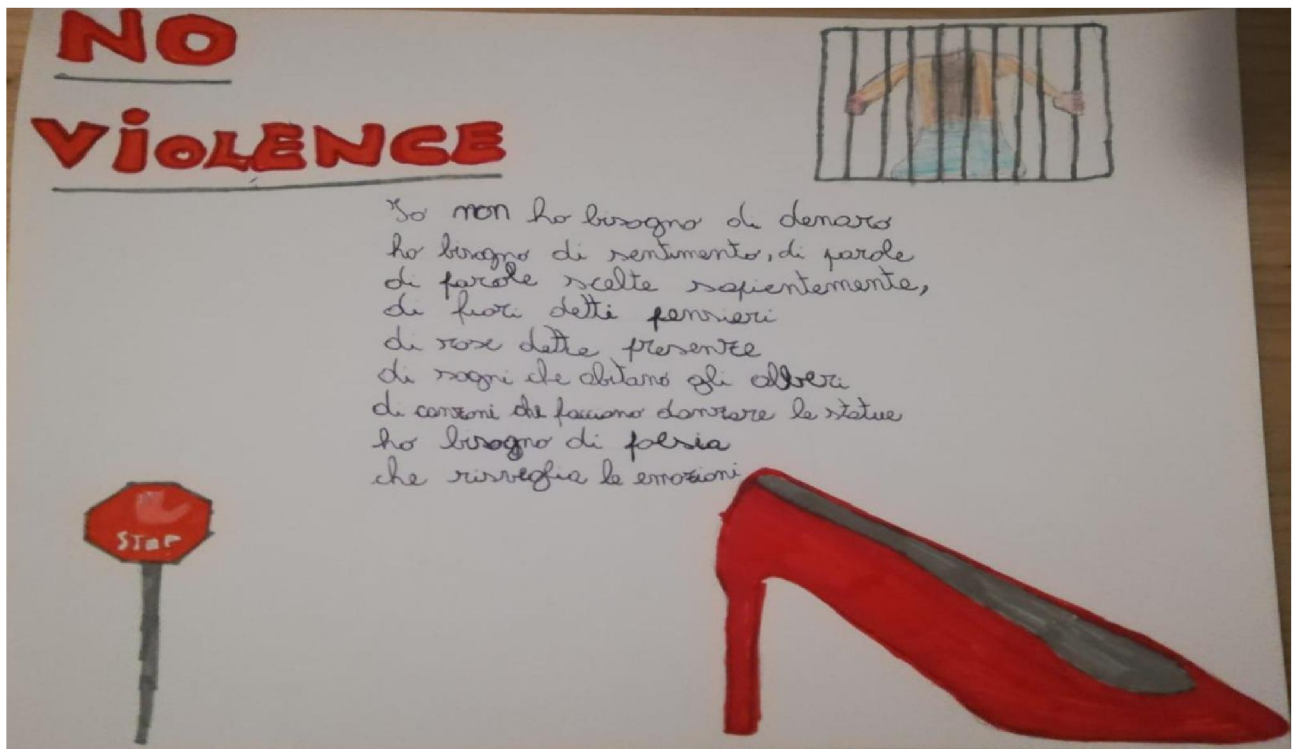 NO
ViOLENCE
Io non ho bisogno di denaro
ho bisogno di sentimento, di parole
di parole scelte sapientemente,
di fiori detti pensieri
di rose dette presenze
di sogni che abitano gli alberi
di canzoni che facciano danzare le statue
ho bisogno di poesia
che risveglia le emozioni
STOP